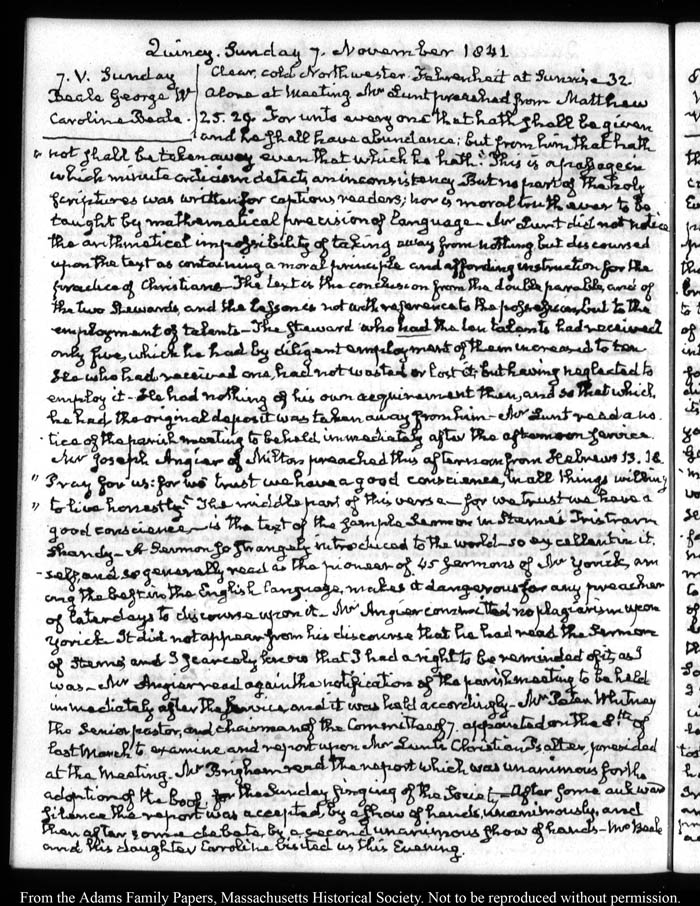 Quincy. Sunday 7. November 1841
7. V. Sunday
Beale George W
Caroline Beale.
Clear, cold Northwester. Fahrenheit at Sunrise 32
Alone at Meeting Mr Lunt preached from Matthew
25. 29. For unto every one that hath shall be given
and he shall have abundance; but from him that hath
" not shall be taken away even that which he hath." This is a passage in
which minute criticism detects an inconsistency. But no part of the holy
Scriptures was written for captious readers; nor is moral truth ever to be
taught by mathematical precision of language— Mr Lunt did not notice
the arithmetical impossibility of taking away from nothing but discoursed
upon the text as containing a moral principle and affording instruction for the
practice of Christians— The text is the conclusion from the double parable, and of
the two Stewards, and the lesson is not with reference to the possession, but to the
employment of talents— The Steward who had the ten talents had received
only five, which he had by diligent employment of them increased to ten
He who had received one, had not wasted or lost it; but having neglected to
employ it— He had nothing of his own acquirement then, and so that which
he had the original deposit was taken away from him— Mr Lunt read a no-
tice of the parish meeting to be held, immediately after the afternoon service.
Mr Joseph Angier of Milton preached this afternoon from Hebrews 13. 18.
" Pray for us: for we trust we have a good conscience, in all things willing
" to live honestly." The middle part of this verse— for we trust we have a
good conscience— is the text of the sample Sermon in Sterne's Tristram
Shandy— A Sermon so strangely introduced to the world— so excellent in it-
self, and so generally read as the pioneer of 45 Sermons of Mr Yorick, am
ong the best in the English language, makes it dangerous for any preacher
of later days to discourse upon it— Mr Angier committed no plagiarism upon
Yorick. It did not appear from his discourse that he had read the Sermon
of Sterne, and I scarcely know that I had a right to be reminded of it, as I
was— Mr Angier read again the notification of the parish meeting to be held
immediately after the service, and it was held accordingly— Mr Peter Whitney
the Senior pastor, and chairman of the Committee of 7. appointed on the 8th of
last March to examine and report upon Mr Lunt's Christian Psalter, presided
at the Meeting. Mr Brigham read the report which was unanimous for the
adoption of the book, for the Sunday singing of the Society— After some awkward
silence the report was accepted, by a show of hands, unanimously, and
then after some debate, by a second unanimous show of hands— Mr Beale
and his daughter Caroline visited us this Evening.
From the Adams Family Papers, Massachusetts Historical Society. Not to be reproduced without permission.